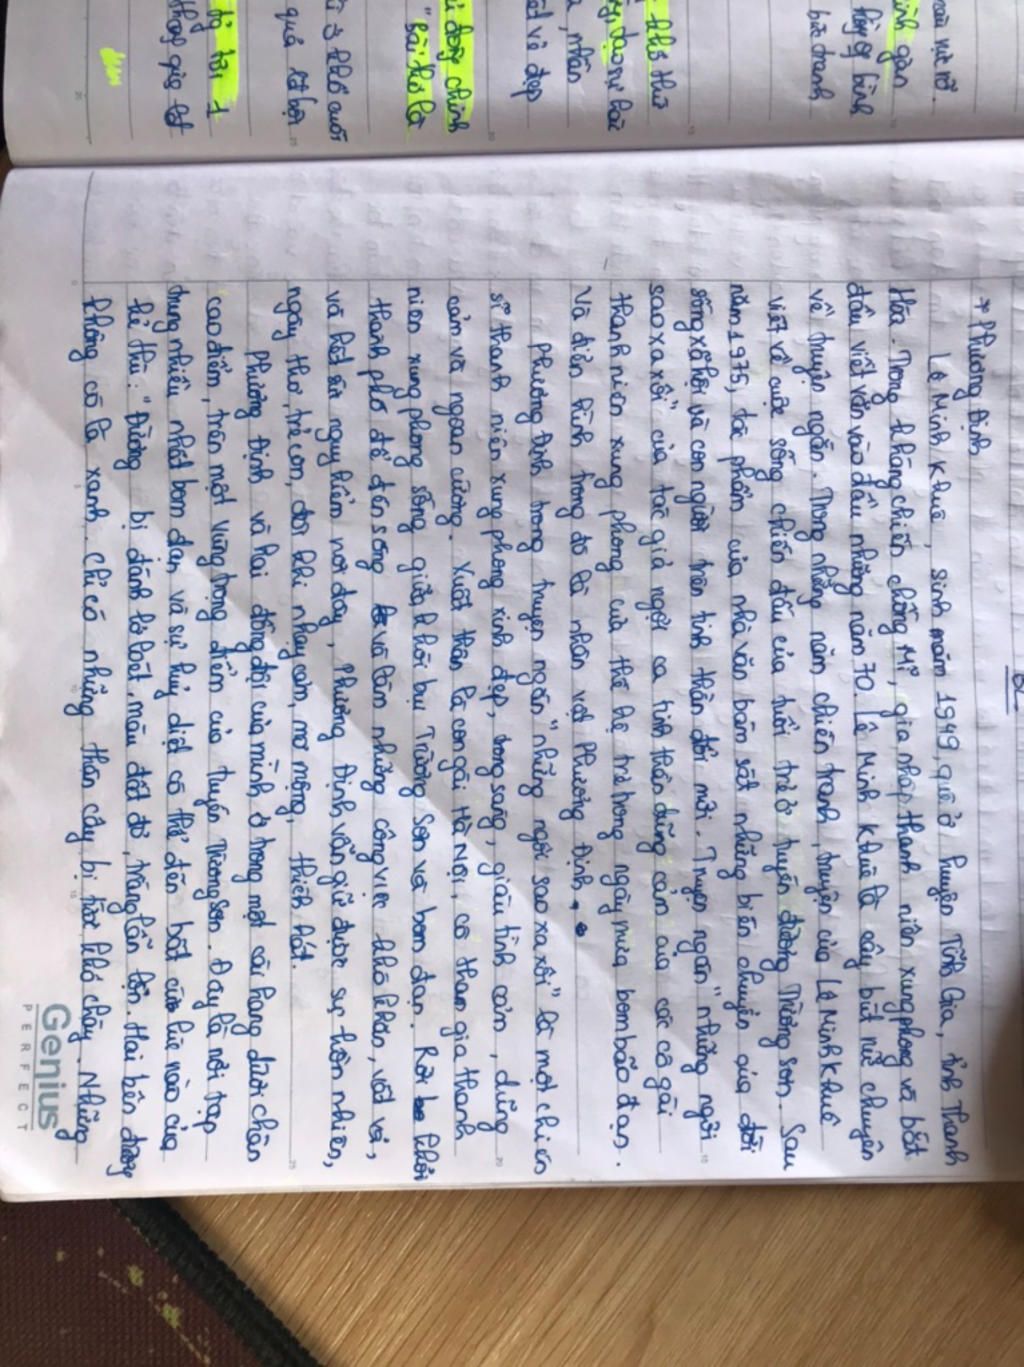 * Phương Định
Lê Minh Khuê, sinh năm 1949, quê ở huyện Tĩnh Gia, tỉnh Thanh
Hóa. Trong kháng chiến chống Mĩ, gia nhập thanh niên xung phong và bắt
đầu viết văn vào đầu những năm 70. Lê Minh Khuê là cây bút nữ chuyên
về truyện ngắn. Trong những năm chiến tranh, truyện của Lê Minh Khuê
viết về cuộc sống chiến đấu của tuổi trẻ ở tuyến đường Trường Sơn. Sau
năm 1975, tác phẩm của nhà văn bám sát những biến chuyển của đời
sống xã hội và con người trên tinh thần đổi mới. Truyện ngắn "những ngôi
sao xa xôi" của tác giả ngợi ca tinh thần dũng cảm của các cô gái
thanh niên xung phong của thế hệ trẻ trong ngày mưa bom bão đạn.
Và điển hình trong đó là nhân vật Phương Định.
Phương Định trong truyện ngắn "những ngôi sao xa xôi" là một chiến
sĩ thanh niên xung phong xinh đẹp, trong sáng, giàu tình cảm, dũng
cảm và ngoan cường. Xuất thân là con gái Hà Nội, cô tham gia thanh
niên xung phong sống giữa khói bụi Trường Sơn và bom đạn. Rời khỏi
thành phố để đến sống và làm những công việc khó khăn, vất vả,
và hết sức nguy hiểm nơi đây, Phương Định vẫn giữ được sự hồn nhiên,
ngây thơ, trẻ con, đôi khi nhạy cảm, mơ mộng, thích hát.
Phương Định và hai đồng đội của mình ở trong một cái hang dưới chân
cao điểm, trên một vùng trọng điểm của tuyến Trường Sơn. Đây là nơi tập
trung nhiều nhất bom đạn và sự huỷ diệt có thể đến bất cứ lúc nào của
kẻ thù: "Đường bị đánh lở loét, màu đất đỏ, trắng lẫn lộn. Hai bên đường
không có lá xanh. Chỉ có những thân cây bị tước khô cháy. Những
Genius
PERFECT